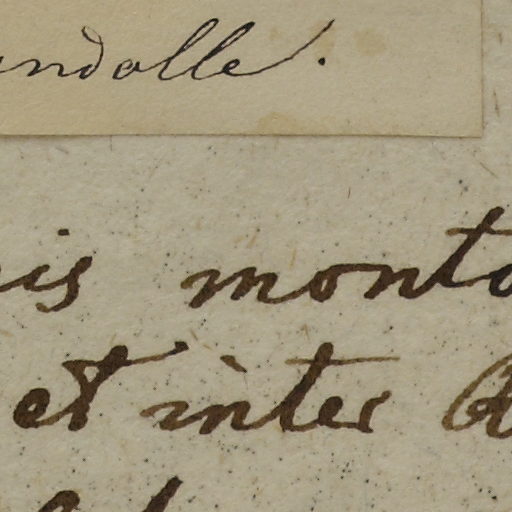 andolle.
is monta
et inter